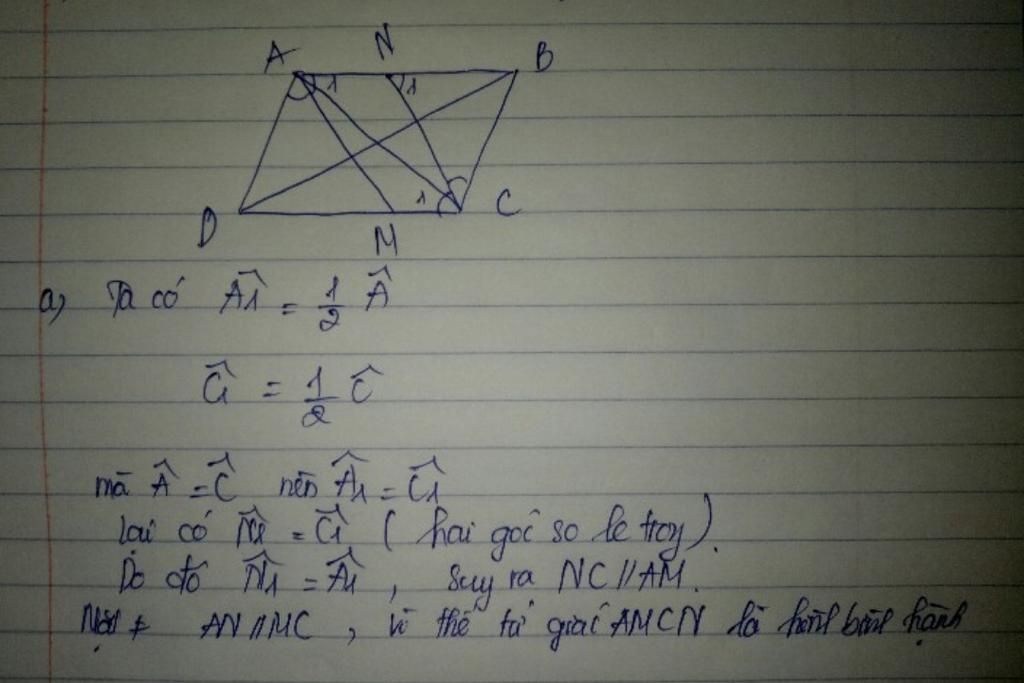 A N B
1 1
1
D M C
a, Ta có Â1 = 1/2 Â
Ĉ1 = 1/2 Ĉ
mà Â = Ĉ nên Â1 = Ĉ1
lại có N̂1 = Ĉ1 ( hai góc so le trong ).
Do đó N̂1 = Â1 , suy ra NC // AM.
Một ≠ AN // MC , vì thế tứ giác AMCN là hình bình hành